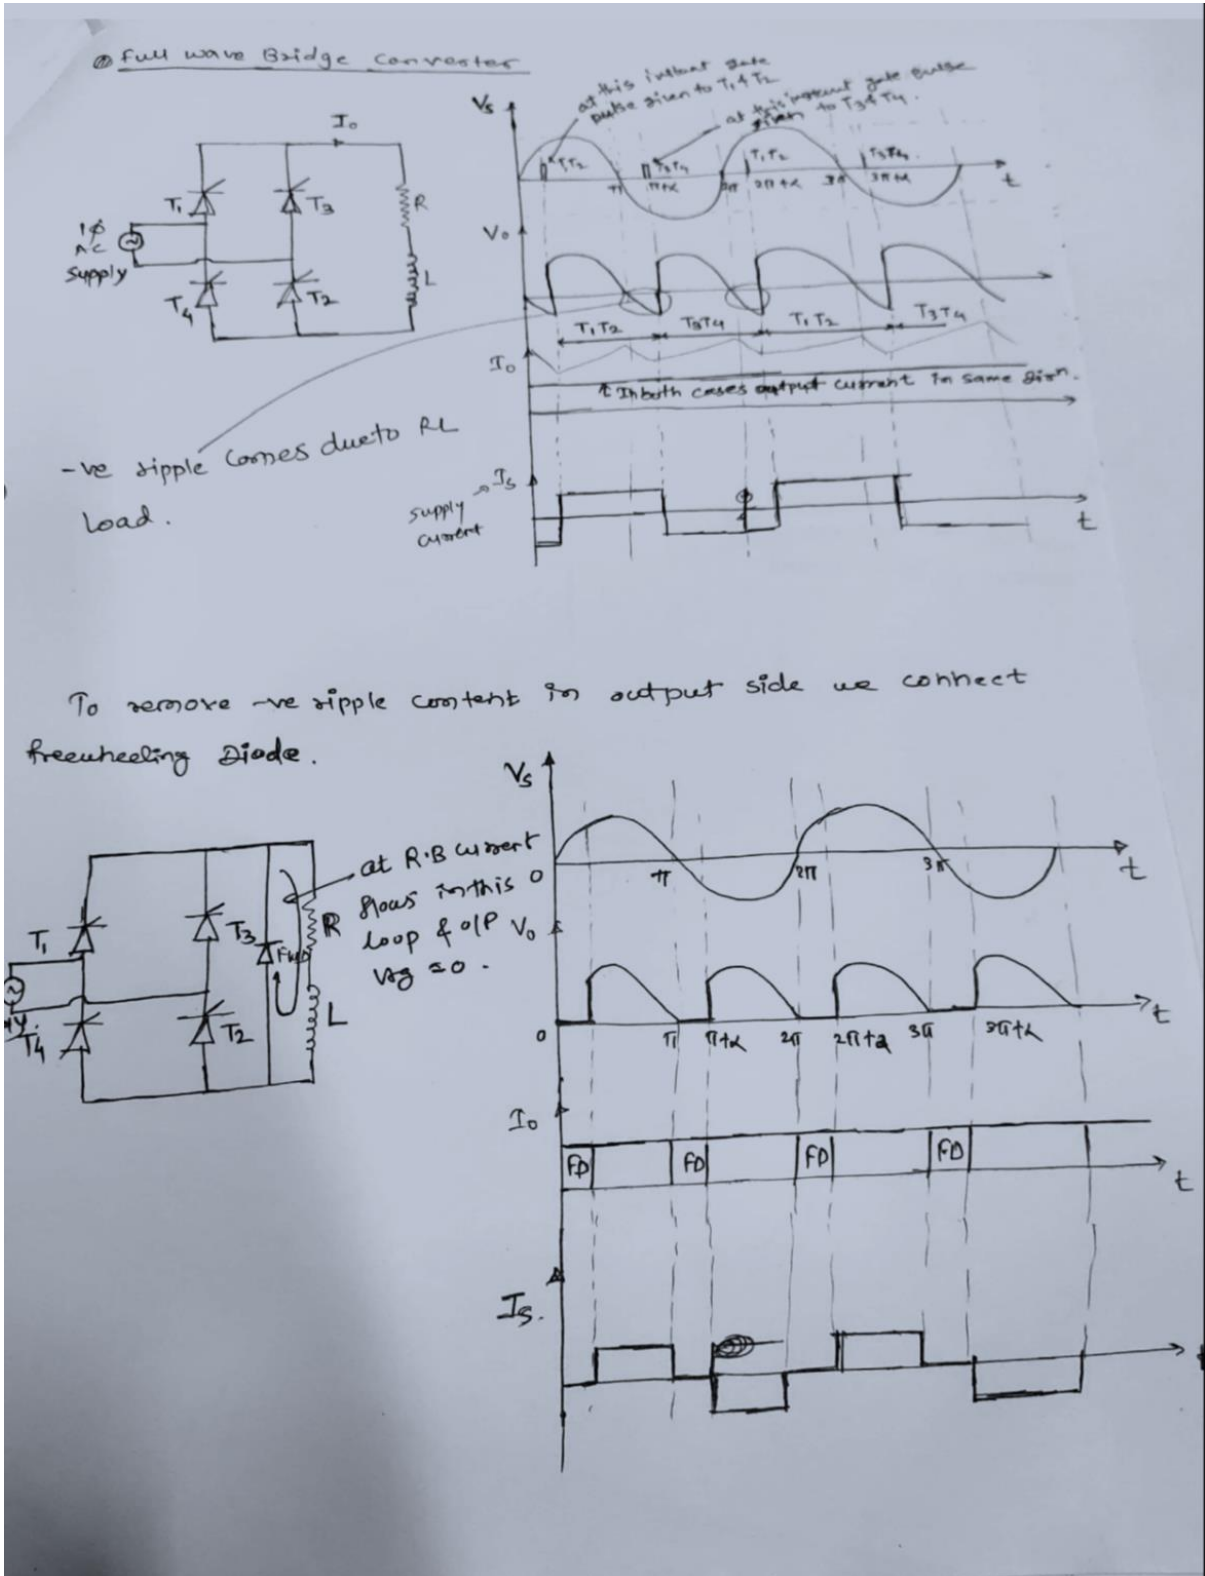 Full wave Bridge Converter
at this instant gate
pulse given to T1 & T2
at this instant gate pulse
given to T3 & T4.
Vs
T1T2
T3T4
T1T2
T3T4
π
π+α
2π
2π+α
3π
3π+α
t
Io
T1
T3
R
1φ
AC
Supply
T4
T2
L
Vo
T1T2
T3T4
T1T2
T3T4
Io
In both cases output current in same dirn.
-ve ripple comes due to RL
Load.
Is
Supply
current
t
To remove -ve ripple content in output side we connect
freewheeling Diode.
Vs
0
π
2π
3π
t
at R.B current
flows in this
loop & o/p
vtg = 0.
T1
T3
FWD
R
T4
T2
L
Vo
0
π
π+α
2π
2π+α
3π
3π+α
t
Io
FD
FD
FD
FD
t
Is.